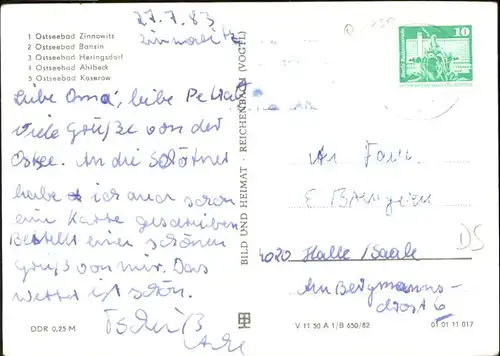 27.7.83
Zinnowitz
1 Ostseebad Zinnowitz
2 Ostseebad Bansin
3 Ostseebad Heringsdorf
4 Ostseebad Ahlbeck
5 Ostseebad Koserow
Liebe Oma, liebe
viele Grüße von der
Ostsee. An die
habe ich auch schon
eine Karte geschrieben
Bestellt einen schönen
Gruß von mir. Das
Wetter ist schön.
DDR 0,25 M
BILD UND HEIMAT · REICHENBACH (VOGTL)
10
An Frau
E
4020 Halle/Saale
Am Bergmanns-
trost 6
DS
V 11 50 A 1/B 650/82
01 01 11 017